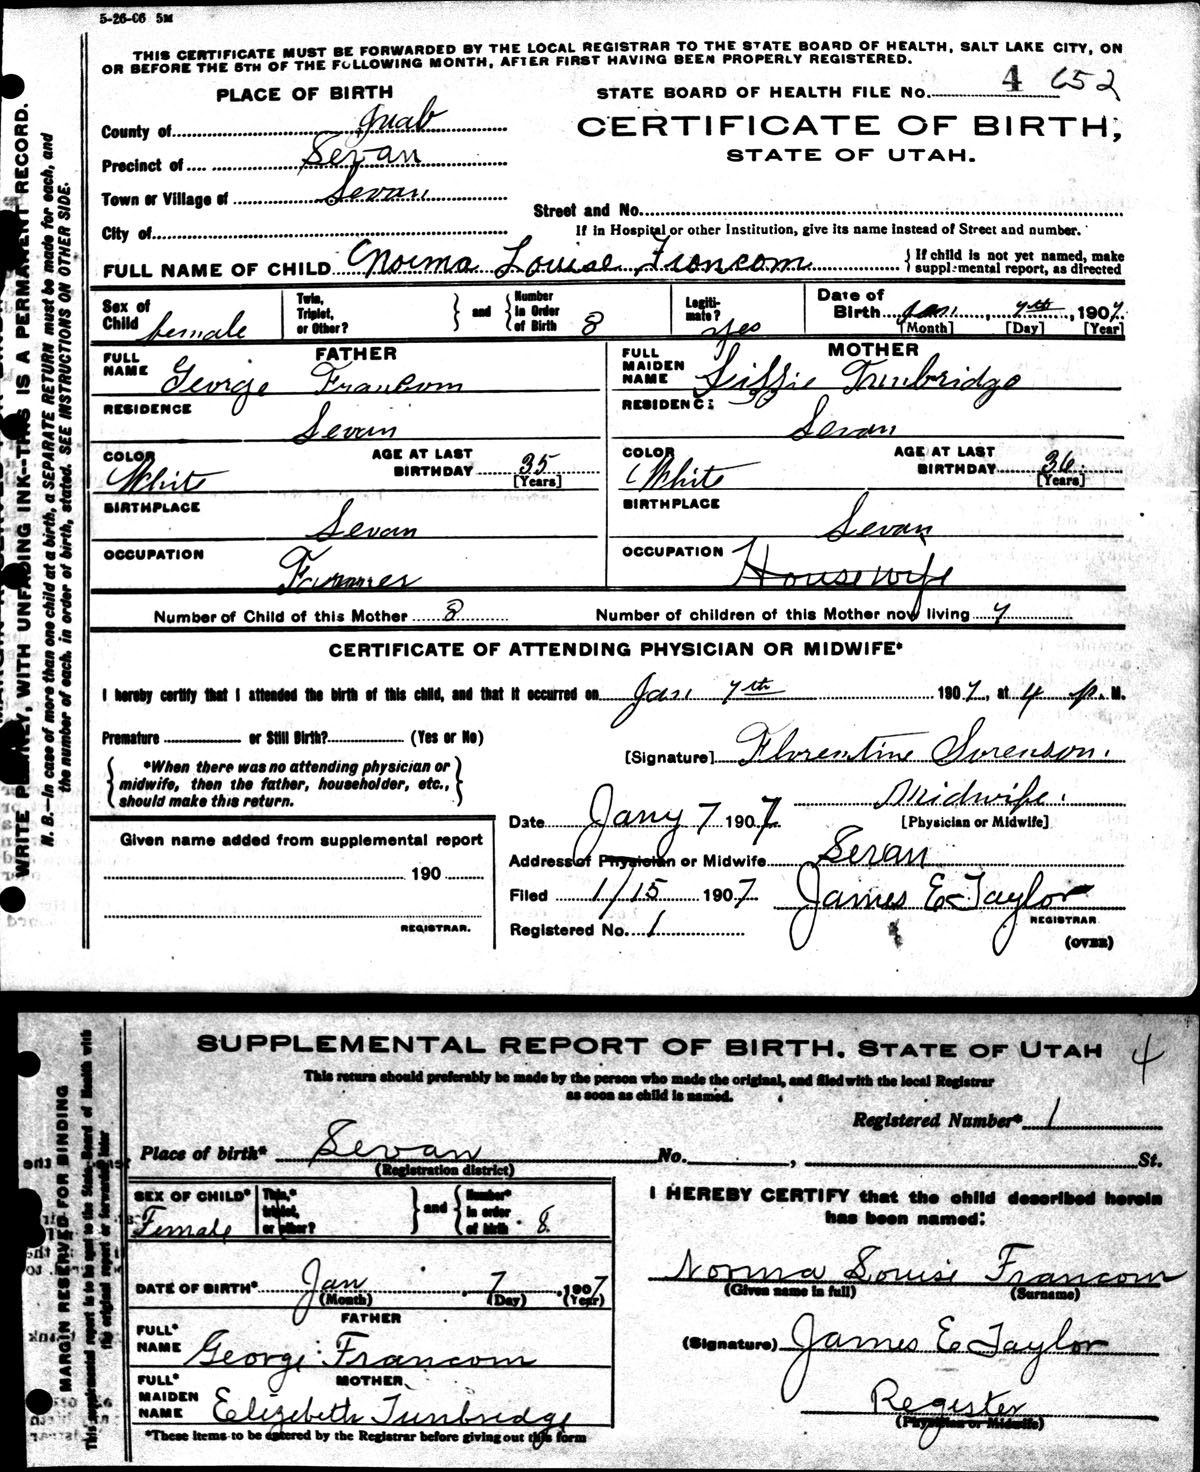 5-26-06 5M
THIS CERTIFICATE MUST BE FORWARDED BY THE LOCAL REGISTRAR TO THE STATE BOARD OF HEALTH, SALT LAKE CITY, ON
OR BEFORE THE 5TH OF THE FOLLOWING MONTH, AFTER FIRST HAVING BEEN PROPERLY REGISTERED.
PLACE OF BIRTH
STATE BOARD OF HEALTH FILE No. 4 652
County of Juab
CERTIFICATE OF BIRTH,
STATE OF UTAH.
Precinct of Levan
Town or Village of Levan
Street and No.
City of
If in Hospital or other Institution, give its name instead of Street and number.
FULL NAME OF CHILD Norma Louise Francom
If child is not yet named, make
supplemental report, as directed
Sex of Child female
Twin, Triplet, or Other? and Number in Order of Birth 8
Legitimate? yes
Date of Birth Jan. 7th, 1907.
[Month] [Day] [Year]
FATHER
FULL NAME George Francom
RESIDENCE Levan
COLOR White AGE AT LAST BIRTHDAY 35 [Years]
BIRTHPLACE Levan
OCCUPATION Farmer
MOTHER
FULL MAIDEN NAME Lizzie Tunbridge
RESIDENCE Levan
COLOR White AGE AT LAST BIRTHDAY 36 [Years]
BIRTHPLACE Levan
OCCUPATION Housewife
Number of Child of this Mother 8 Number of children of this Mother now living 7
CERTIFICATE OF ATTENDING PHYSICIAN OR MIDWIFE*
I hereby certify that I attended the birth of this child, and that it occurred on Jan 7th 1907, at 4 p. M.
Premature or Still Birth? (Yes or No)
*When there was no attending physician or
midwife, then the father, householder, etc.,
should make this return.
[Signature] Florentine Sorenson.
Midwife.
[Physician or Midwife]
Date Jany 7 1907
Address of Physician or Midwife Levan
Filed 1/15 1907 James E Taylor
REGISTRAR
Registered No. 1
(OVER)
Given name added from supplemental report
190
REGISTRAR.
WRITE PLAINLY, WITH UNFADING INK--THIS IS A PERMANENT RECORD.
N. B.—In case of more than one child at a birth, a SEPARATE RETURN must be made for each, and
the number of each, in order of birth, stated. SEE INSTRUCTIONS ON OTHER SIDE.
SUPPLEMENTAL REPORT OF BIRTH. STATE OF UTAH 4
This return should preferably be made by the person who made the original, and filed with the local Registrar
as soon as child is named.
Registered Number* 1
Place of birth* Levan No. , St.
(Registration district)
SEX OF CHILD* Female
Twin,* triplet, or other? and Number* in order of birth 8.
DATE OF BIRTH* Jan 7 1907
(Month) (Day) (Year)
FATHER
FULL* NAME George Francom
MOTHER
FULL* MAIDEN NAME Elizebeth Tunbridge
*These items to be entered by the Registrar before giving out this form
I HEREBY CERTIFY that the child described herein
has been named:
Norma Louise Francom
(Given name in full) (Surname)
(Signature) James E Taylor
Register
(Physician or Midwife)
MARGIN RESERVED FOR BINDING
This supplemental report is to be sent to the State Board of Health with
the original report or forwarded later